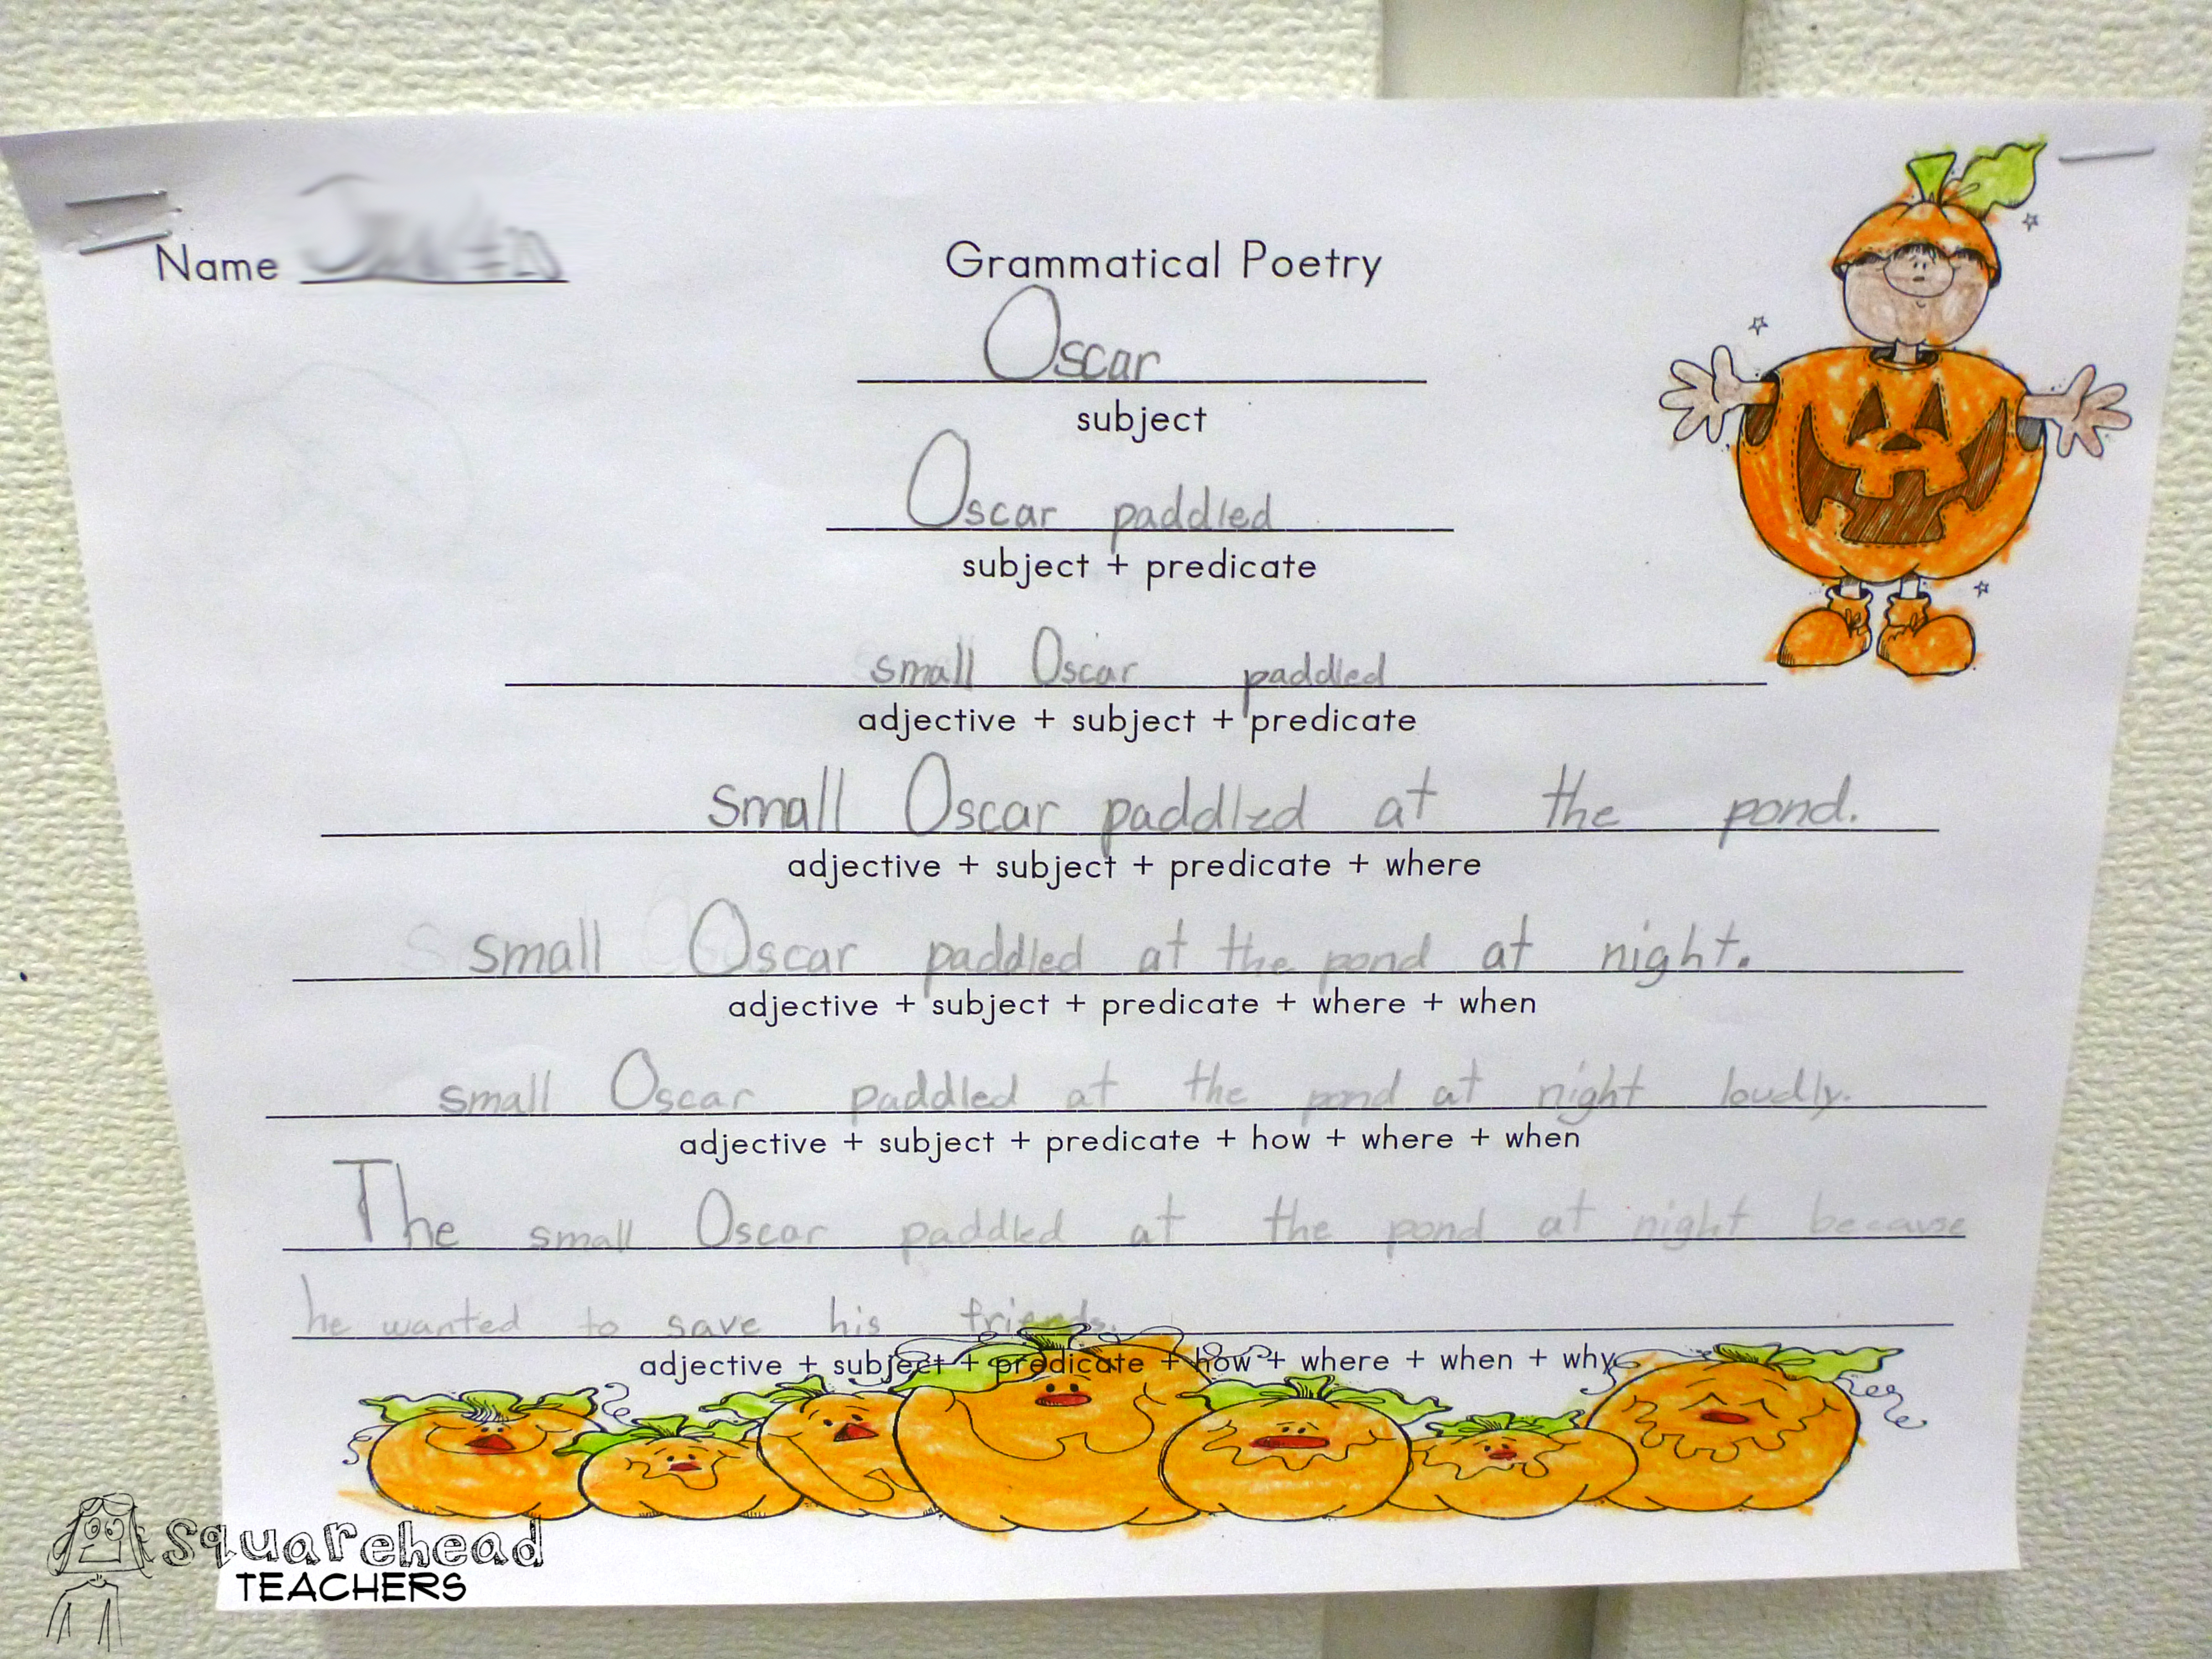 Name
Grammatical Poetry
Oscar
subject
Oscar paddled
subject + predicate
small Oscar paddled
adjective + subject + predicate
small Oscar paddled at the pond.
adjective + subject + predicate + where
small Oscar paddled at the pond at night.
adjective + subject + predicate + where + when
small Oscar paddled at the pond at night loudly.
adjective + subject + predicate + how + where + when
The small Oscar paddled at the pond at night because
he wanted to save his friends.
adjective + subject + predicate + how + where + when + why
Squarehead
TEACHERS